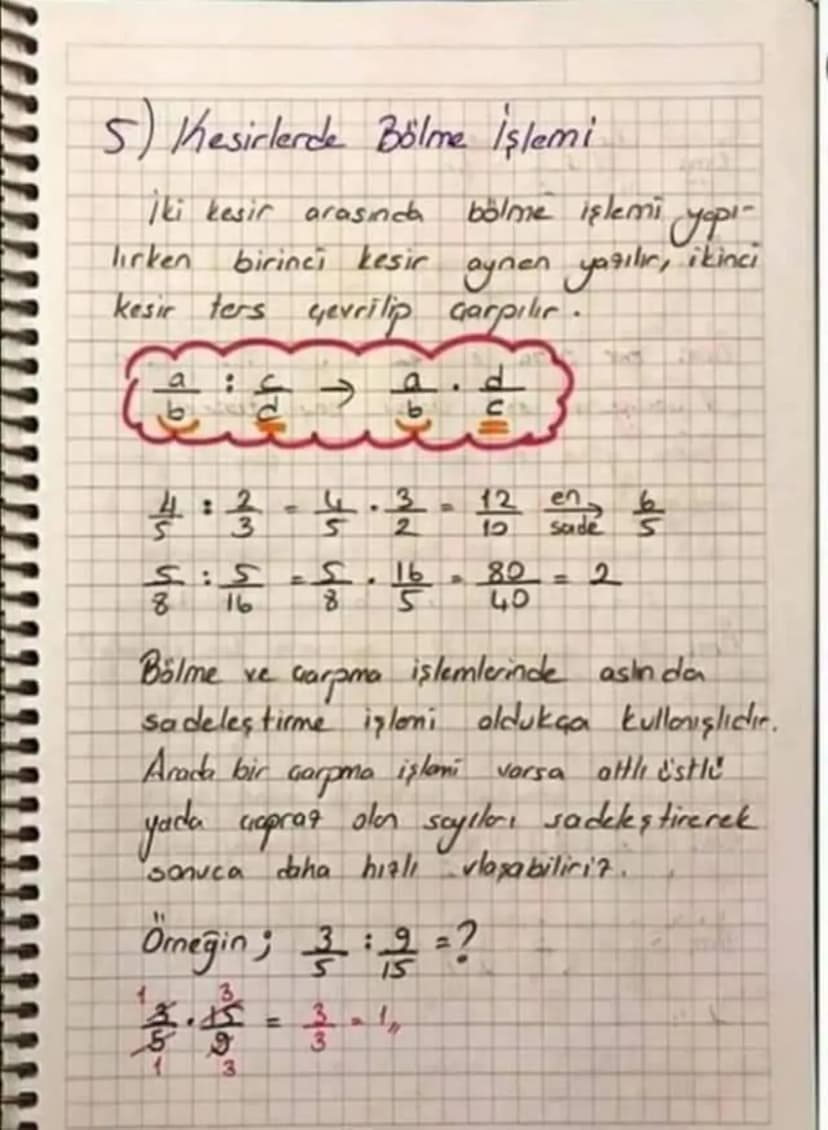 5) Kesirlerde Bölme İşlemi
İki kesir arasında bölme işlemi yapı-
lırken birinci kesir aynen yazılır, ikinci
kesir ters çevrilip çarpılır.
a/b : c/d → a/b . d/c
4/5 : 2/3 = 4/5 . 3/2 = 12/10 en sade → 6/5
5/8 : 5/16 = 5/8 . 16/5 = 80/40 = 2
Bölme ve çarpma işlemlerinde aslında
sadeleştirme işlemi oldukça kullanışlıdır.
Arada bir çarpma işlemi varsa altlı üstlü
yada çapraz olan sayıları sadeleştirerek
sonuca daha hızlı ulaşabiliriz.
Örneğin; 3/5 : 9/15 = ?
1 3
3/5 . 15/9 = 3/3 = 1,,
1 3